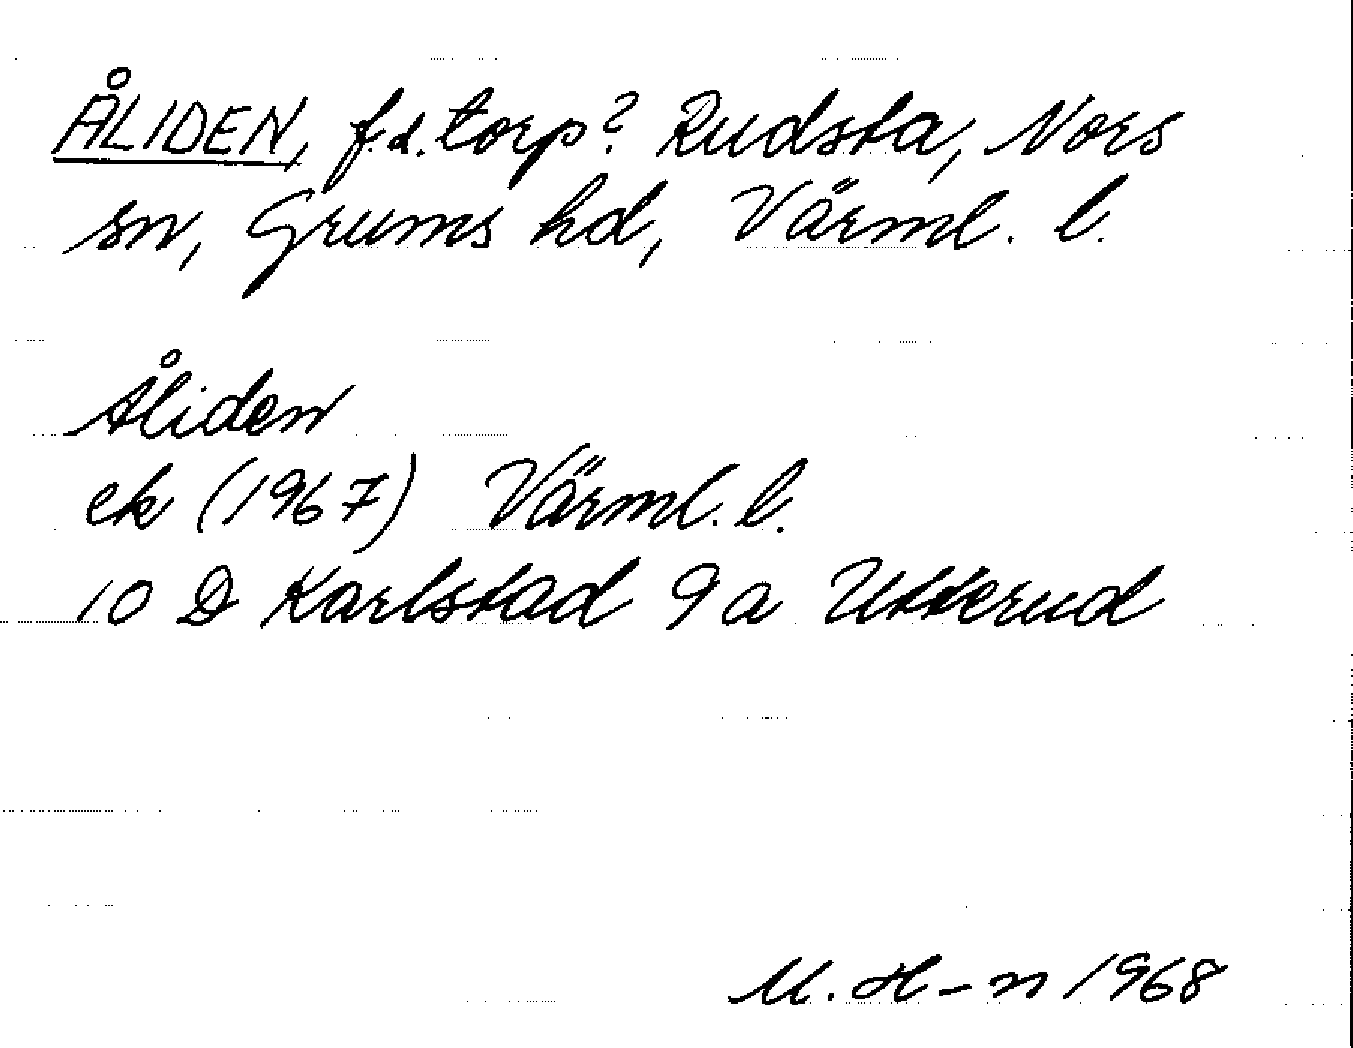 ÅLIDEN, f.d. torp? Rudsta, Nors
sn, Grums hd, Värml. l.
Åliden
ek (1967) Värml. l.
10 D Karlstad 9a Utterud
M. H-n 1968